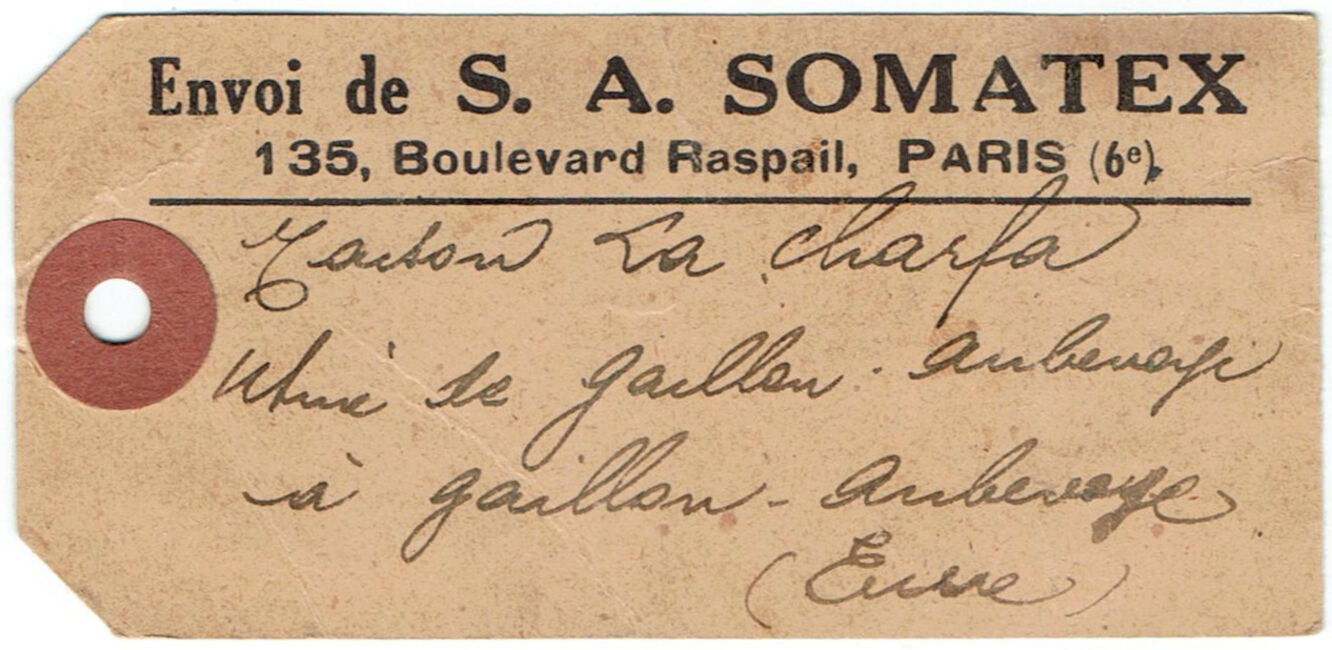 Envoi de S. A. SOMATEX
135, Boulevard Raspail, PARIS (6e).
Maison La Charfa
Usine de Gaillon - Aubevoye
à Gaillon - Aubevoye
(Eure)